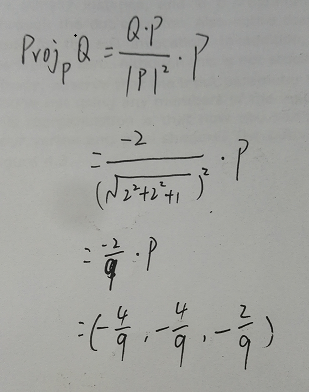 Proj_P Q = \frac{Q·P}{|P|^2} · P
= \frac{-2}{(\sqrt{2^2+2^2+1})^2} · P
= \frac{-2}{9} · P
= (-\frac{4}{9}, -\frac{4}{9}, -\frac{2}{9})